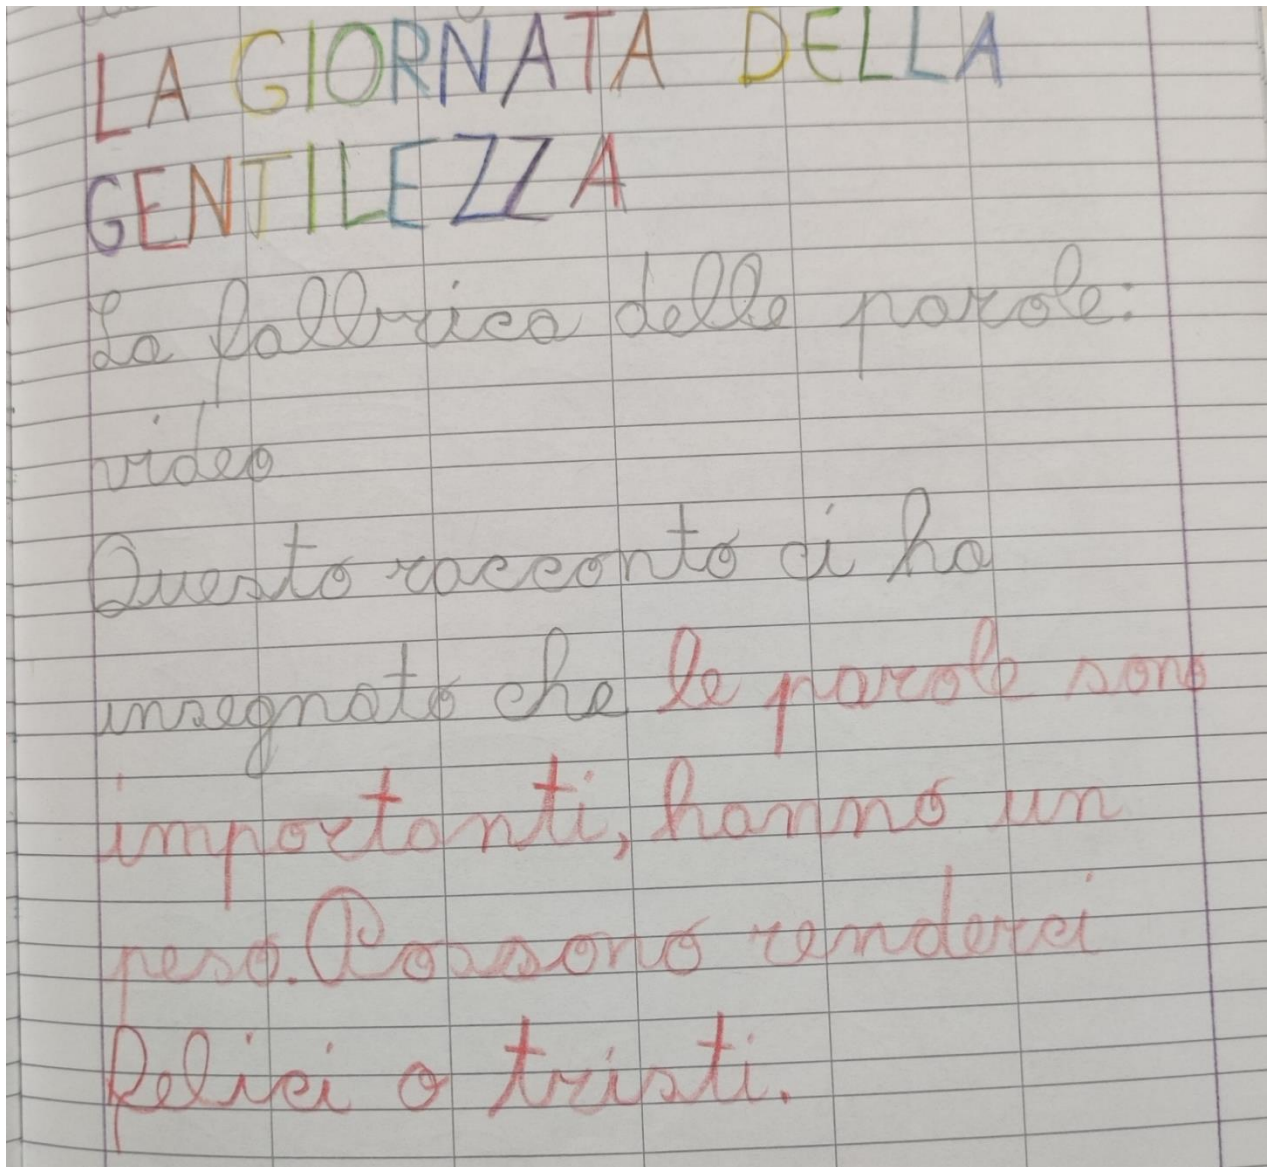 LA GIORNATA DELLA
GENTILEZZA
La fabbrica delle parole:
video
Questo racconto ci ha
insegnato che le parole sono
importanti, hanno un
peso. Possono renderci
felici o tristi.